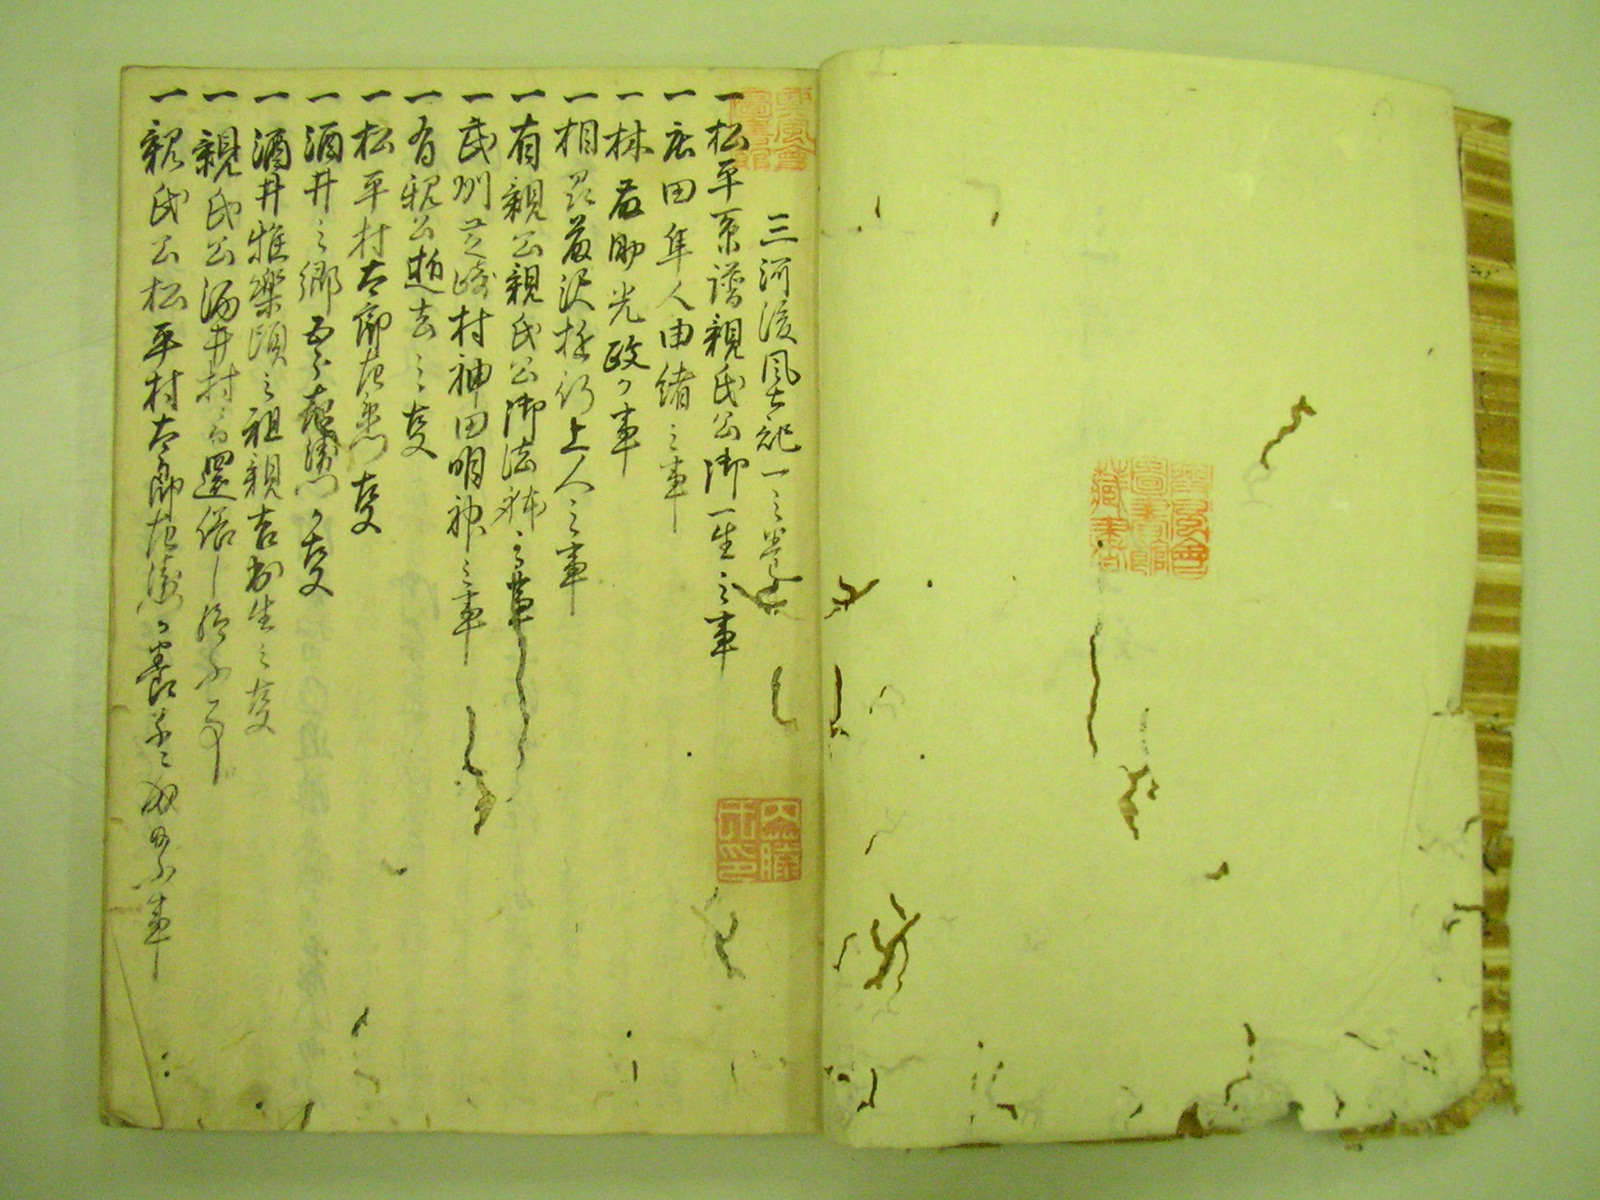 三河後風土記一之巻
一松平系譜親氏公御一生之事
一庄田隼人由緒之事
一林藤助光政力事
一相州藤沢遊行上人之事
一有親公親氏公御法称之事
一武州芝崎村神田明神之事
一有親公逝去之事
一松平村太郎左衛門事
一酒井之郷五郎左衛門力事
一酒井雅樂頭之祖親吉出生之事
一親氏公酒井村ニ而還俗し給ふ事
一親氏公松平村太郎左衛門力養子ニ成給ふ事